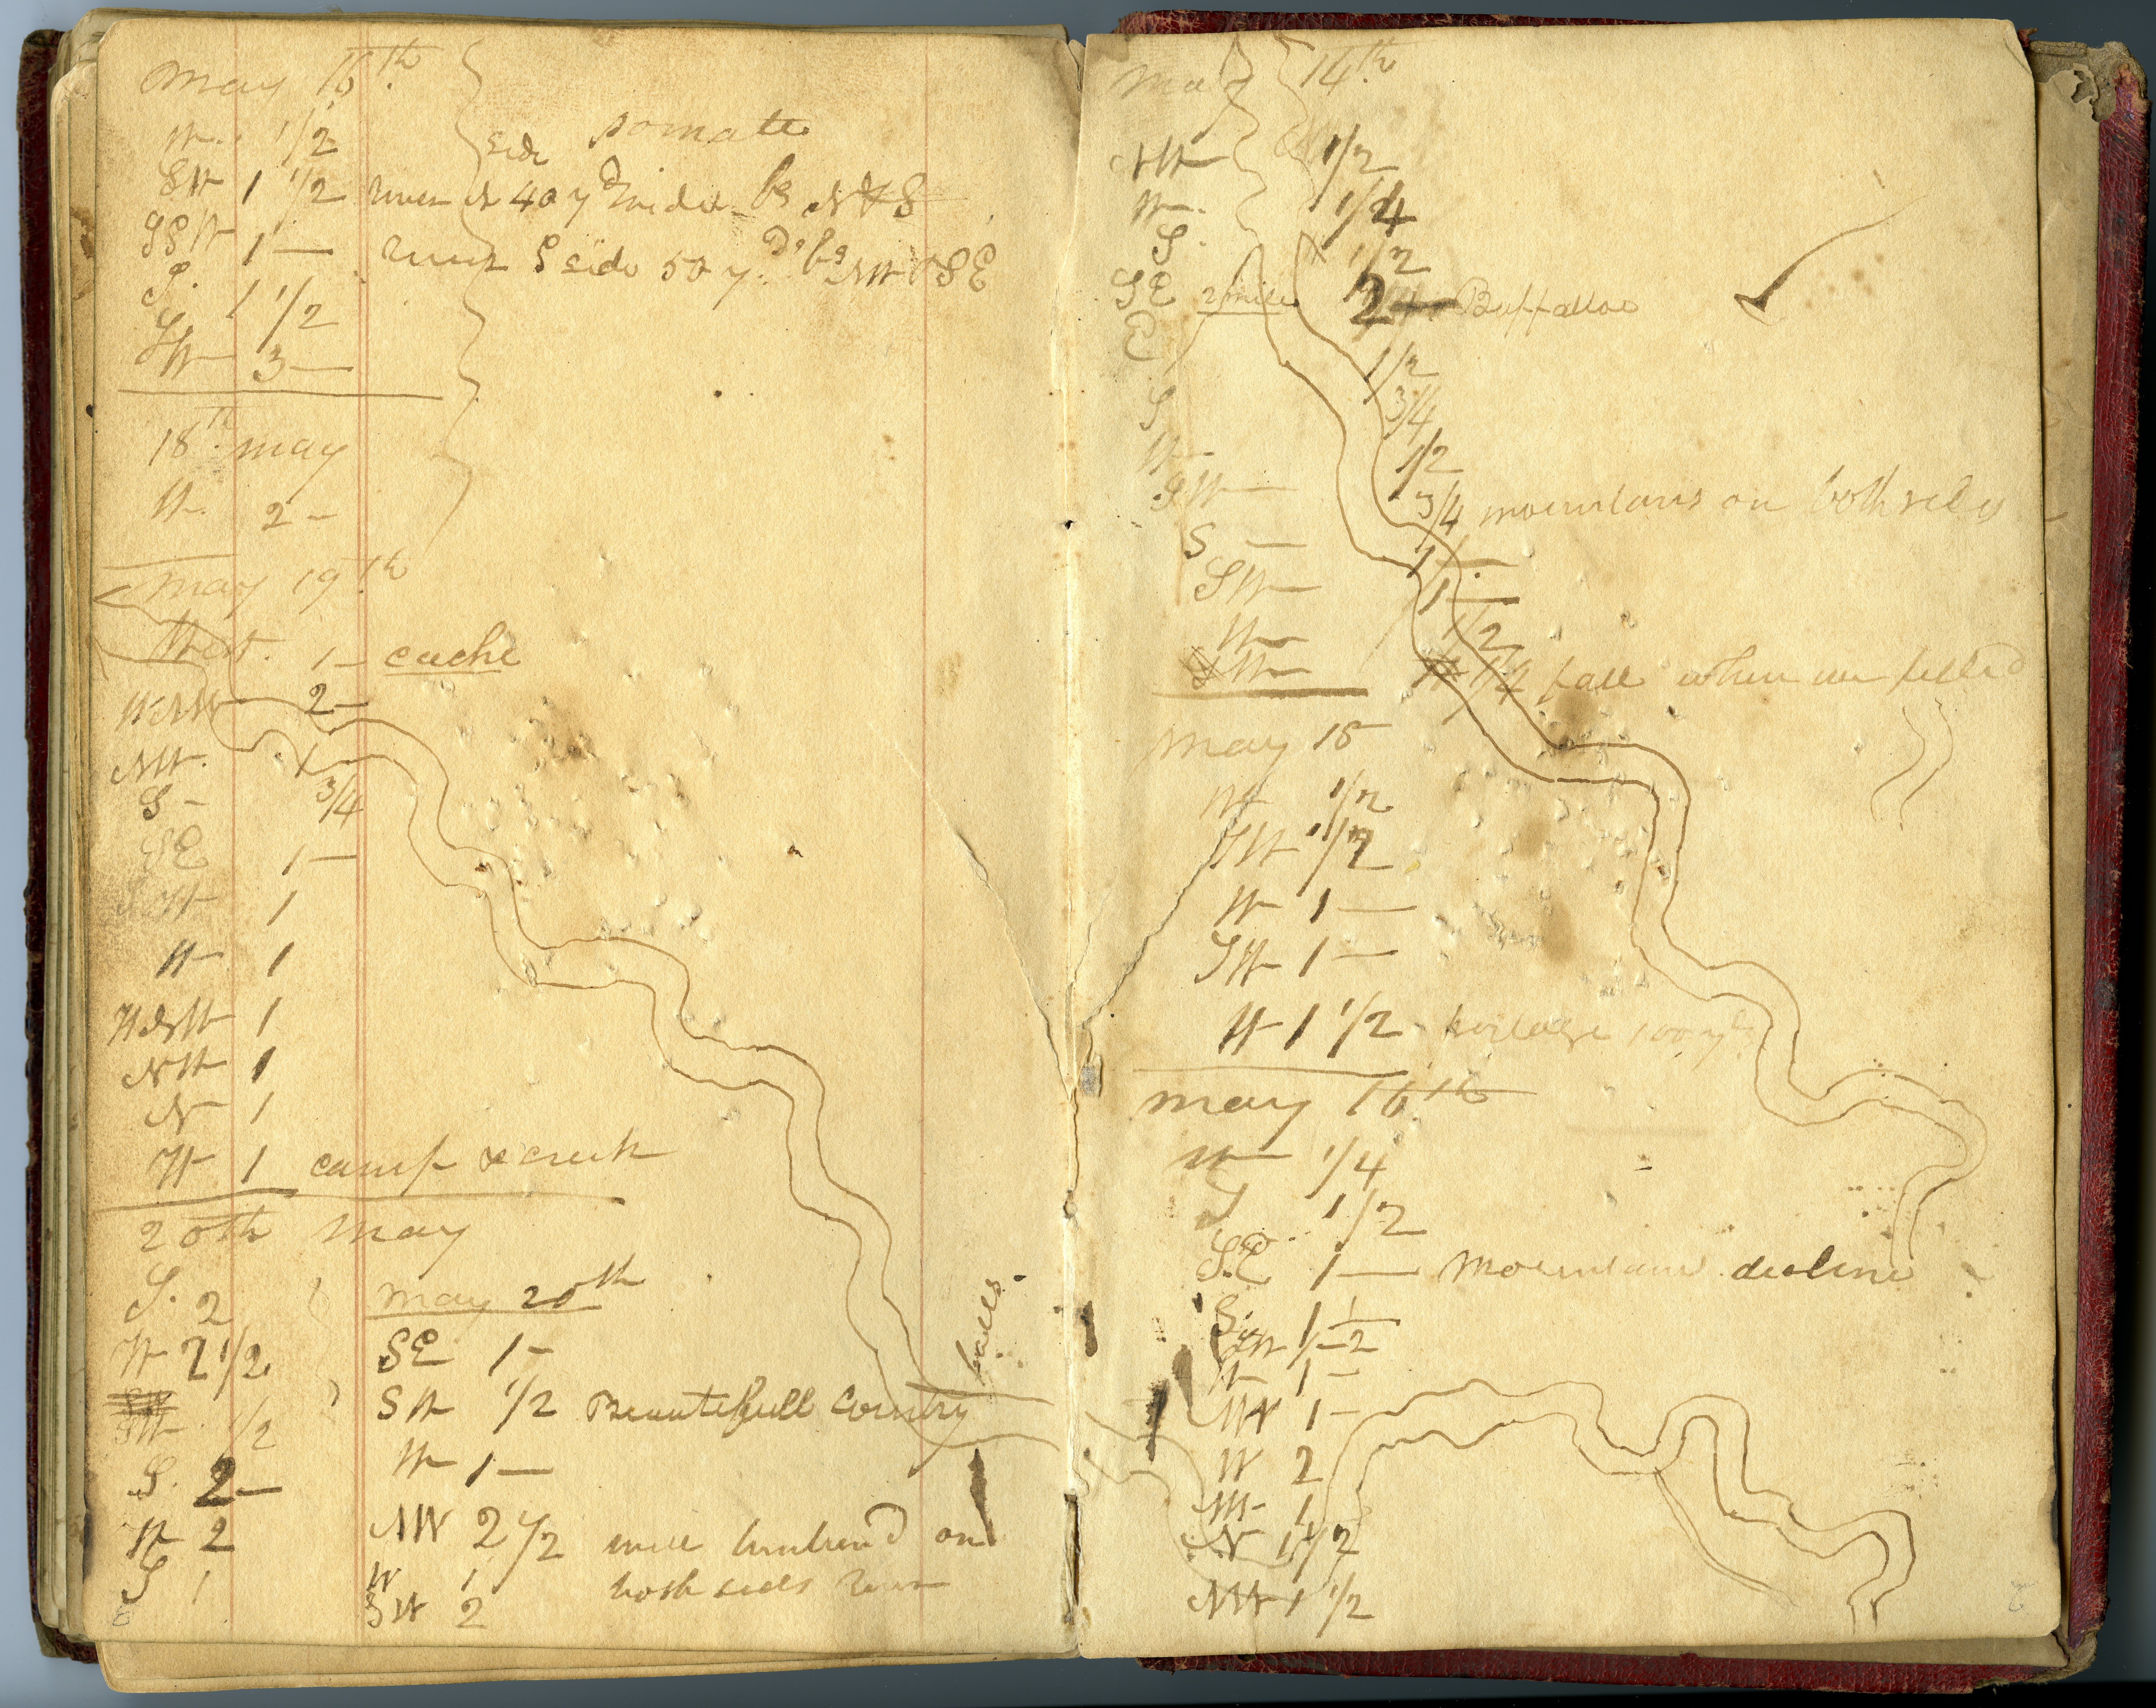 May 16th
W. 1/2
side
SW 1 1/2 river is 40 yd wide bg N & S
SSW 1 — river S side 50 yds bg NW & SE
S. 1 1/2
SW 3 —
18th May
W. 2 —
May 19th
West. 1 — cache
WNW 2 —
NW. 1
S — 3/4
SE 1 —
SW 1
W 1
WNW 1
NW 1
N 1
W 1 camp & creek
20th May
S. 2
W 2 1/2
SW 1/2
S. 2 —
W 2
S 1
May 20th
SE 1 —
SW 1/2 Beautifull Country
W 1 —
NW 2 1/2 well timbered on
both sides river
W 1
SW 2
falls
May 14th
NW 1/2
W. 1/4
S. 1/2
SE 2 mile 2 — Buffaloe
E 1/2
S 3/4
W — 1/2
SW — 3/4 mountains on both sides
S — 1 —
SW 1 —
W 1/2
SW 1/2 fall when we
May 15
W 1/2
SW 1/2
W 1 —
SW 1 —
W 1 1/2 portage 100 yds
May 16th
W 1/4
S 1/2
S.E 1 — Mountains decline
S. 1 1/2
W 1 —
NW 1 —
W 2
NW 1
N 1 1/2
NW 1 1/2